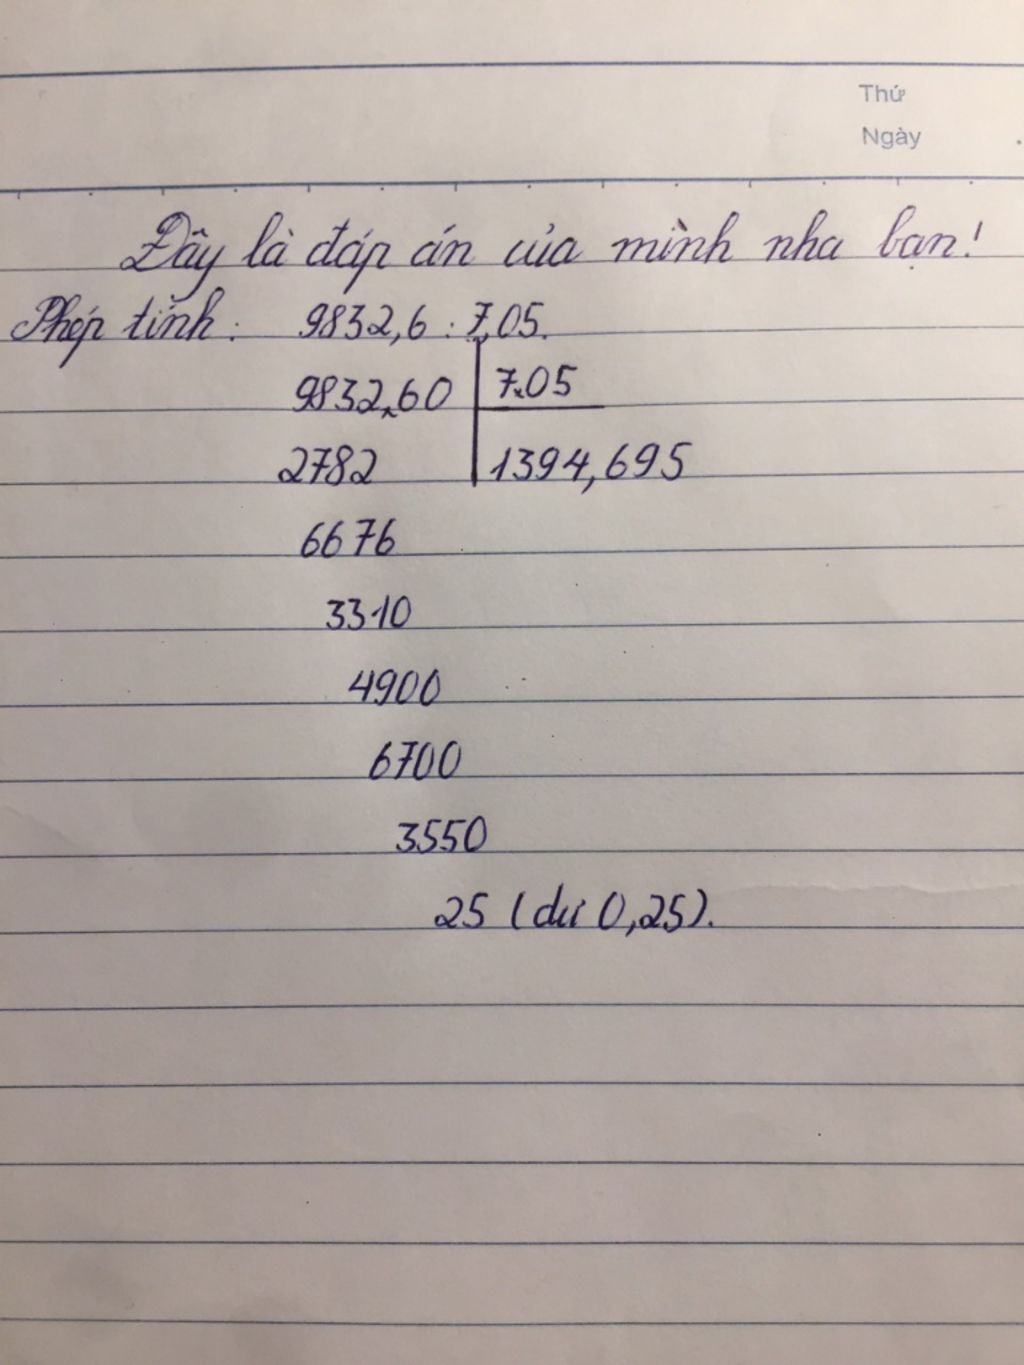 Thứ
Ngày
Đây là đáp án của mình nha bạn!
Phép tính: 9832,6 : 7,05.
9832,60 7,05
2782 1394,695
6676
3310
4900
6700
3550
25 (dư 0,25).